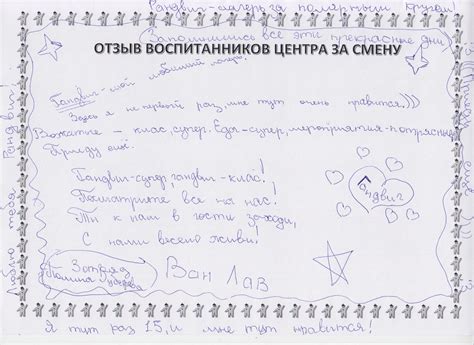 Гандвиг-лагерь за полярным кругом!
Запомнились все эти прекрасные дни
ОТЗЫВ ВОСПИТАННИКОВ ЦЕНТРА ЗА СМЕНУ
Гандвиг-мой любимый лагерь.
Здесь я не первый раз, мне тут очень нравится.)))
Вожатые - класс, супер. Еда-супер, мероприятия-потрясные
Приеду ещё.
Гандвиг-супер, гандвиг-класс!
Посмотрите все на нас!
Ты к нам в гости заходи,
С нами весело живи!
Гандвиг
3 отряд
Ван Лав
Люблю тебя Гандвиг!
Я тут раз 15, и мне тут нравится!